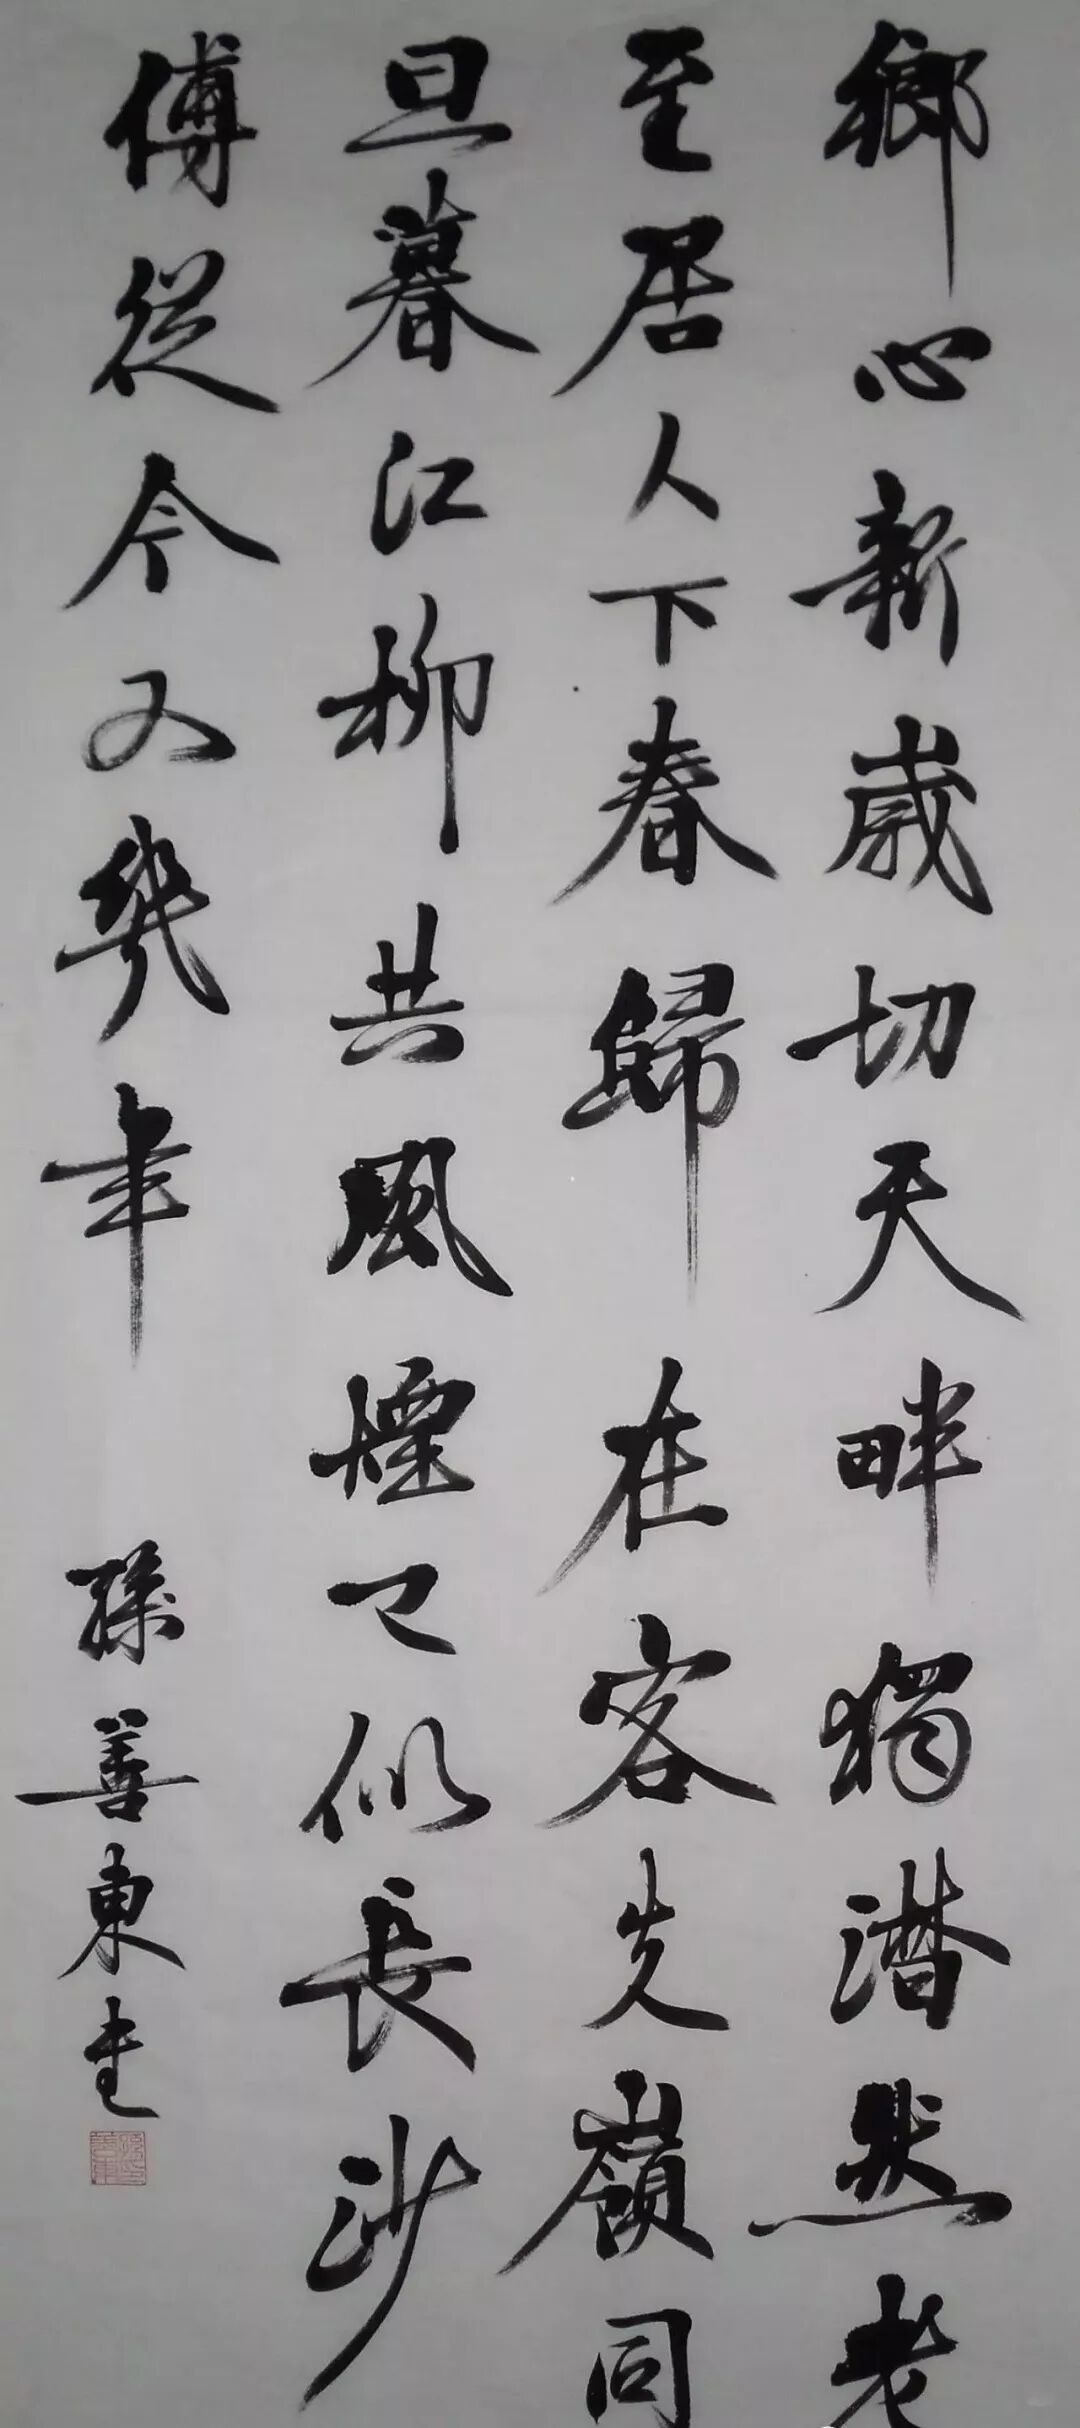 鄉心新歲切天畔獨潸然老
至居人下春歸在客先嶺同
旦暮江柳共風煙已似長沙
傅從今又幾年
孫善東書